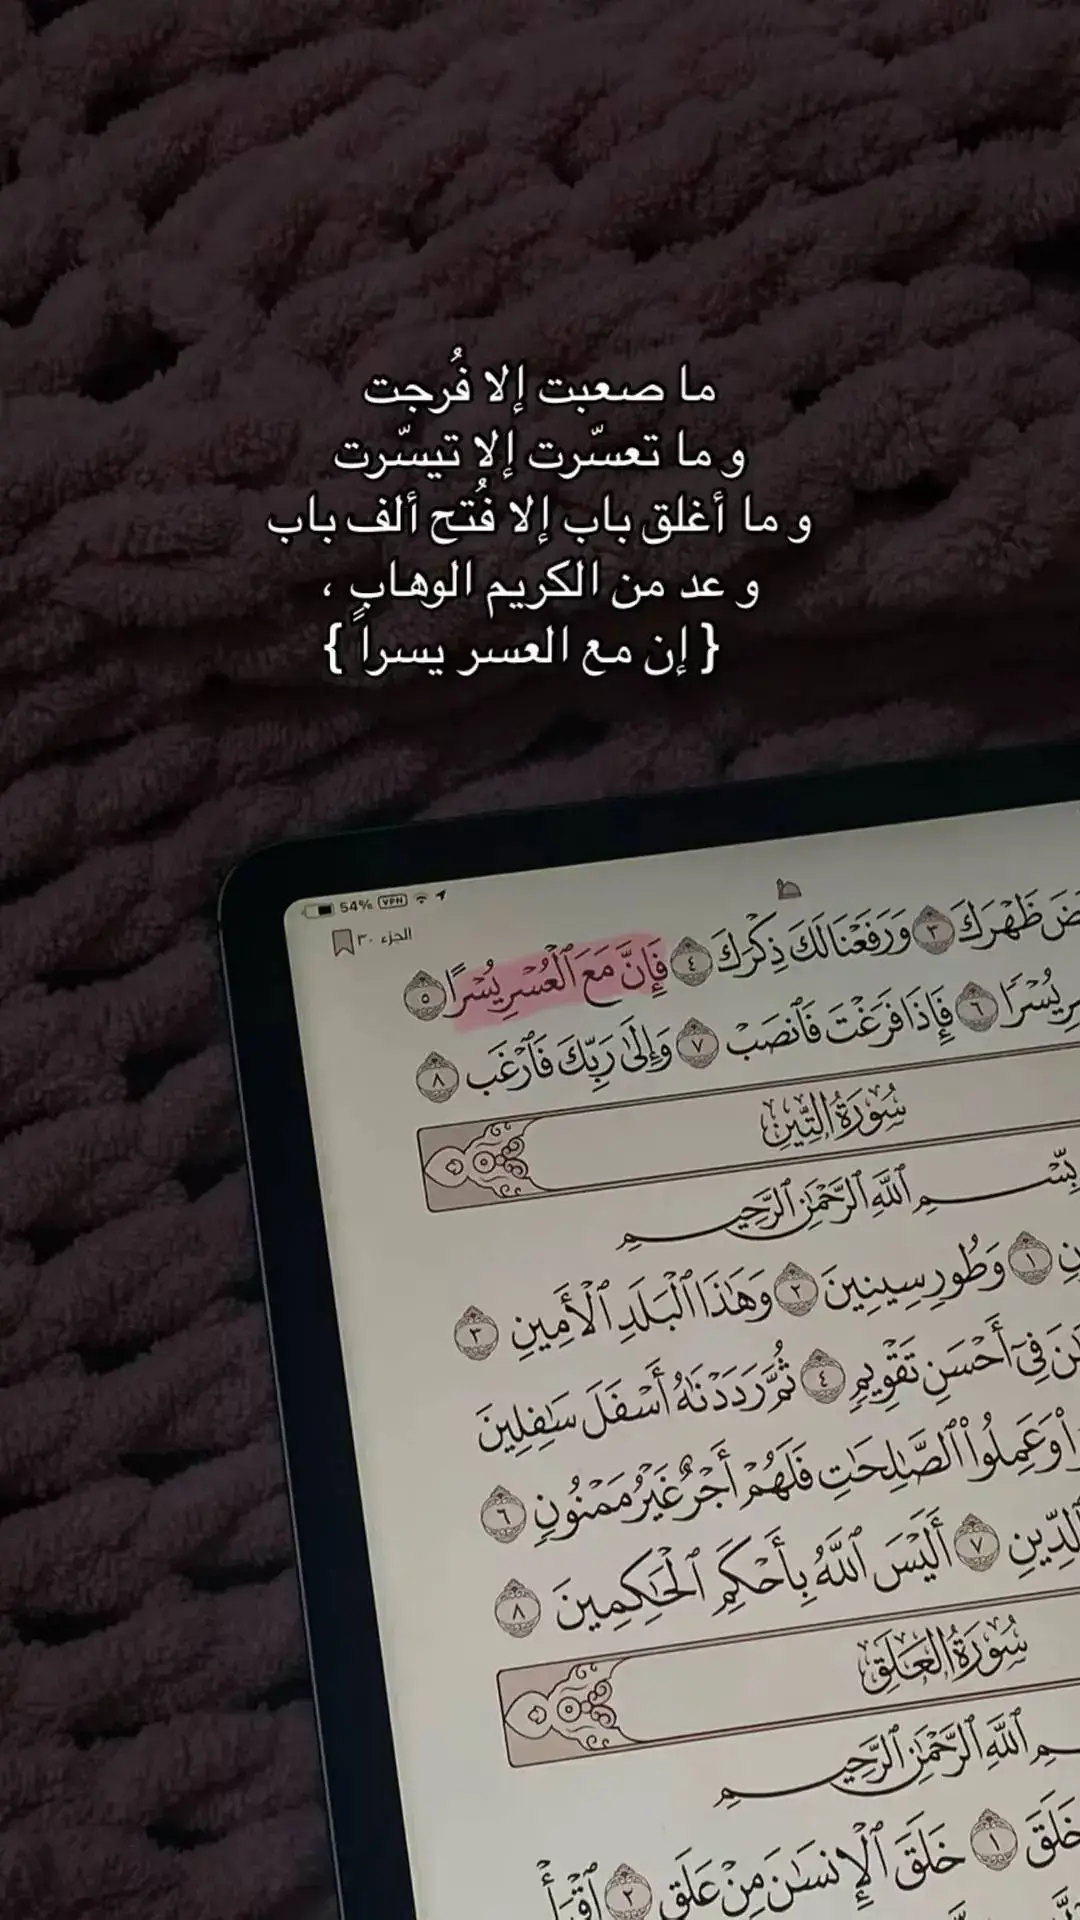 ما صعبت إلا فُرجت
و ما تعسّرت إلا تيسّرت
و ما أغلق باب إلا فُتح ألف باب
و عد من الكريم الوهاب ،
{ إن مع العسر يسراً }
54% VPN
الجزء ٣٠
ظَهۡرَكَ ٣ وَرَفَعۡنَا لَكَ ذِكۡرَكَ ٤ فَإِنَّ مَعَ ٱلۡعُسۡرِ يُسۡرًا ٥
يُسۡرٗا ٦ فَإِذَا فَرَغۡتَ فَٱنصَبۡ ٧ وَإِلَىٰ رَبِّكَ فَٱرۡغَب ٨
سُورَةُ التِّينِ
بِسۡمِ ٱللَّهِ ٱلرَّحۡمَٰنِ ٱلرَّحِيمِ
١ وَطُورِ سِينِينَ ٢ وَهَٰذَا ٱلۡبَلَدِ ٱلۡأَمِينِ ٣
فِيٓ أَحۡسَنِ تَقۡوِيمٖ ٤ ثُمَّ رَدَدۡنَٰهُ أَسۡفَلَ سَٰفِلِينَ
وَعَمِلُواْ ٱلصَّٰلِحَٰتِ فَلَهُمۡ أَجۡرٌ غَيۡرُ مَمۡنُونٖ ٦
ٱلدِّينِ ٧ أَلَيۡسَ ٱللَّهُ بِأَحۡكَمِ ٱلۡحَٰكِمِينَ ٨
سُورَةُ العَلَقِ
ٱللَّهِ ٱلرَّحۡمَٰنِ ٱلرَّحِيمِ
خَلَقَ ١ خَلَقَ ٱلۡإِنسَٰنَ مِنۡ عَلَقٍ ٢ ٱقۡرَأۡ